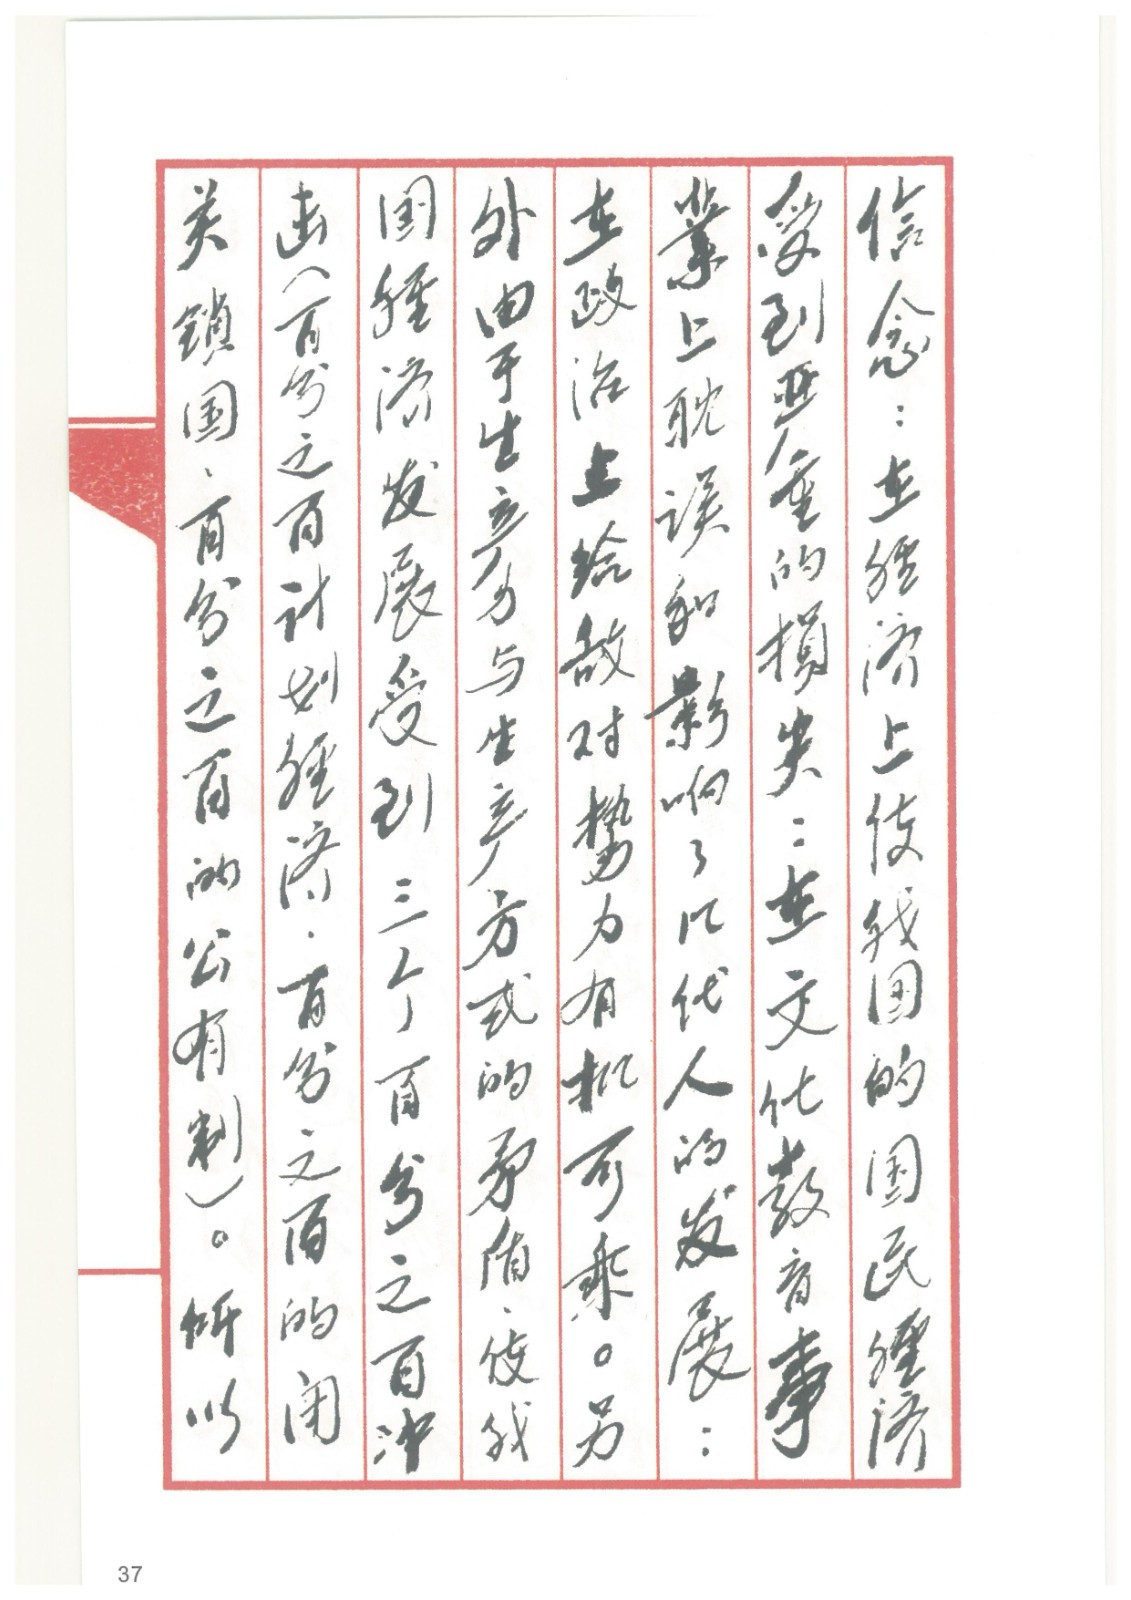 信念：在经济上使我国的国民经济
受到严重的损失：在文化教育事
业上耽误和影响了几代人的发展：
在政治上给敌对势力有机可乘。另
外由于生产力与生产方式的矛盾、使我
国经济发展受到三个百分之百冲
击（百分之百计划经济、百分之百的闭
关锁国、百分之百的公有制）。所以
37